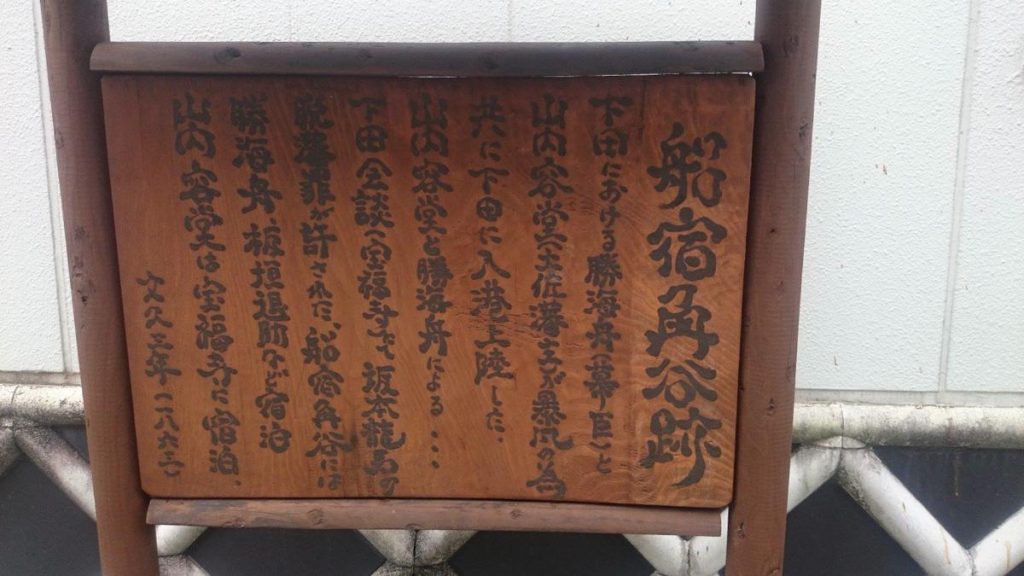 船宿角谷跡
下田における勝海舟(幕臣)と
山内容堂(土佐藩主)が暴風の為
共に下田に入港上陸した、
山内容堂と勝海舟による・・・
下田会談(宝福寺)で坂本龍馬の
脱藩罪が許された、船宿角谷には
勝海舟、板垣退助など宿泊
山内容堂は宝福寺に宿泊、
文久三年(一八六三)